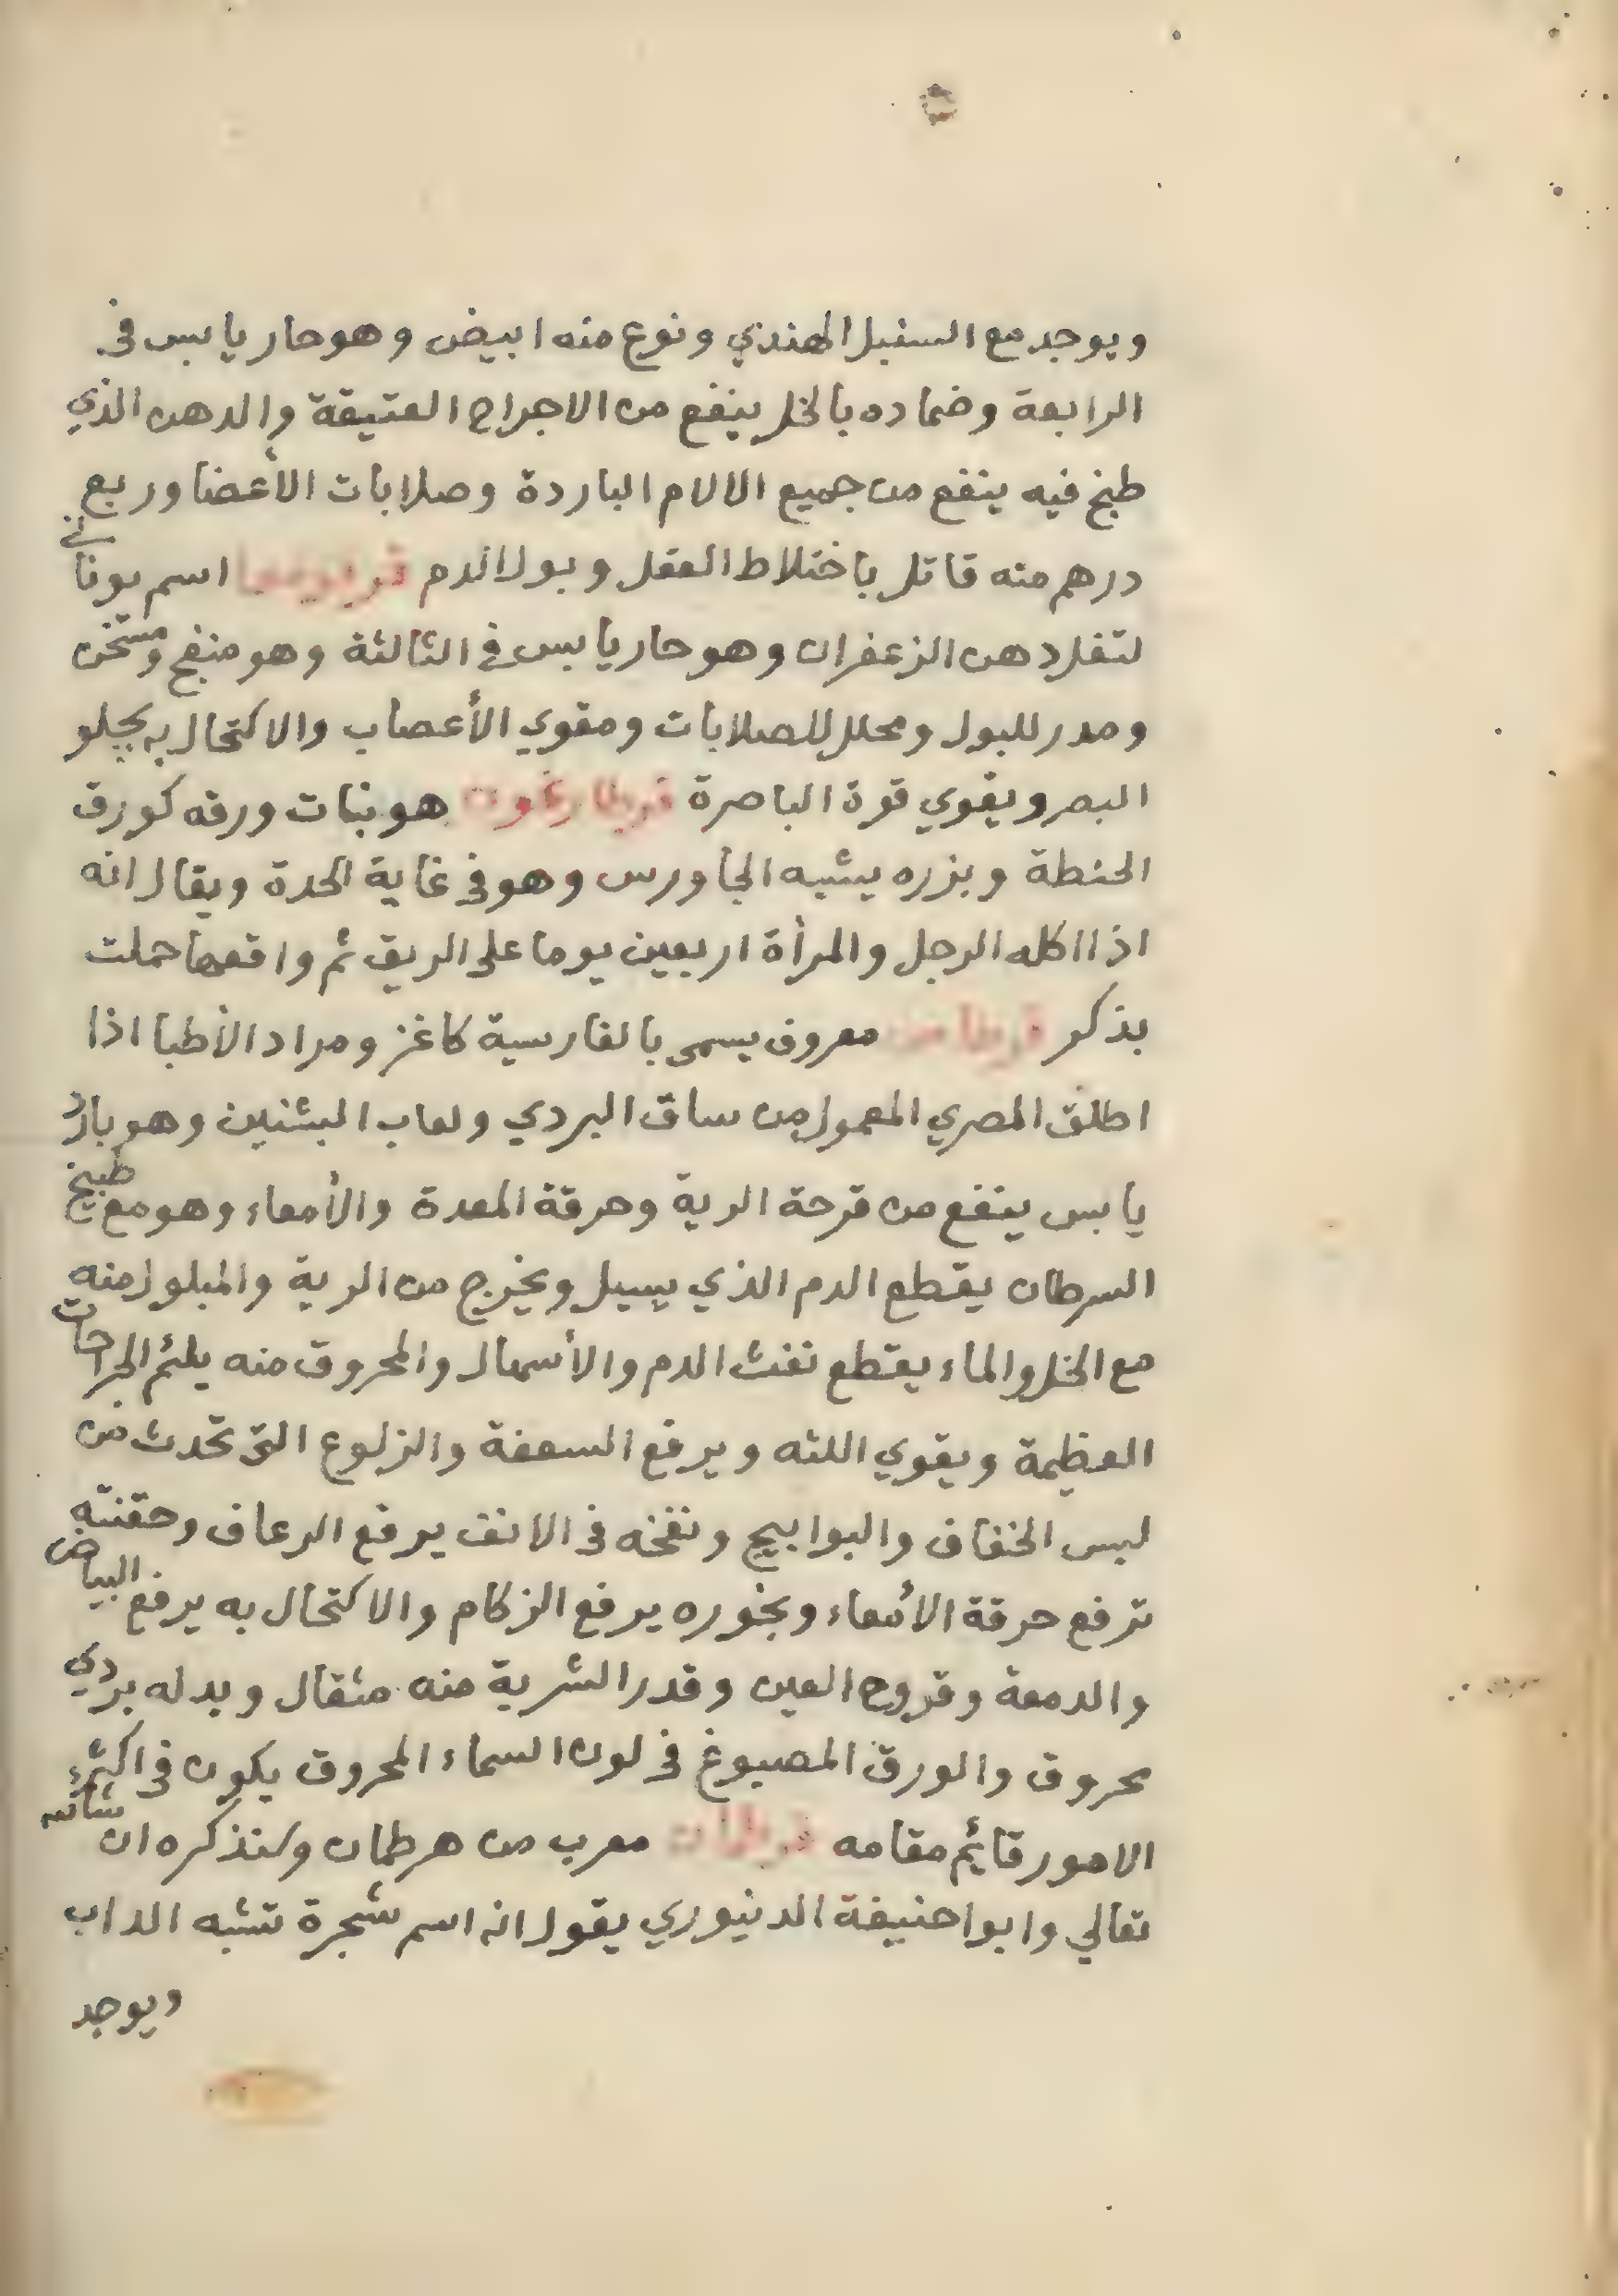 ويوجد مع السنبل الهندي ونوع منه ابيض وهو حار يابس في
الرابعة وضماده بالخل ينفع من الاجراح العتيقة والدهن الذي
طبخ فيه ينفع من جميع الالام الباردة وصلابات الأعضا وربع
درهم منه قاتل باختلاط العقل وبول الدم اسم يوناني
لتفل دهن الزعفران وهو حار يابس في الثالثة وهو منفح ومسخن
ومدر للبول ومحلل للصلابات ومقوي الأعصاب والاكتحال به يجلو
البصر ويقوي قوة الباصرة هو نبات ورقه كورق
الحنطة وبزره يشبه الجاورس وهو في غاية الحدة ويقال انه
اذا اكله الرجل والمرأة اربعين يوما على الريق ثم واقعها حملت
بذكر معروف يسمى بالفارسية كاغز ومراد الأطبا اذا
اطلق المصري المعمول من ساق البردي ولعاب البشنين وهو بارد
يابس ينفع من قرحة الرية وحرقة المعدة والأمعاء وهو مع طبيخ
السرطان يقطع الدم الذي يسيل ويخرج من الرية والمبلول منه
مع الخل والماء يقطع نفث الدم والأسهال والمحروق منه يلئم الجراحات
العظيمة ويقوي اللثه ويرفع السعفة والزلوع التي تحدث من
لبس الخفاف والبوابيج ونفخه في الانف يرفع الرعاف وحقنته
ترفع حرقة الأمعاء وبخوره يرفع الزكام والاكتحال به يرفع البياض
والدمعة وقروح العين وقدر الشربة منه مثقال وبدله بردي
محروق والورق المصبوغ في لون السماء المحروق يكون في اكثر
الامور قايم مقامه معرب من هرطمان وسنذكره ان شاالله
تعالي وابو احنيفة الدنيوري يقول انه اسم شجرة تشبه الداب
ويوجد